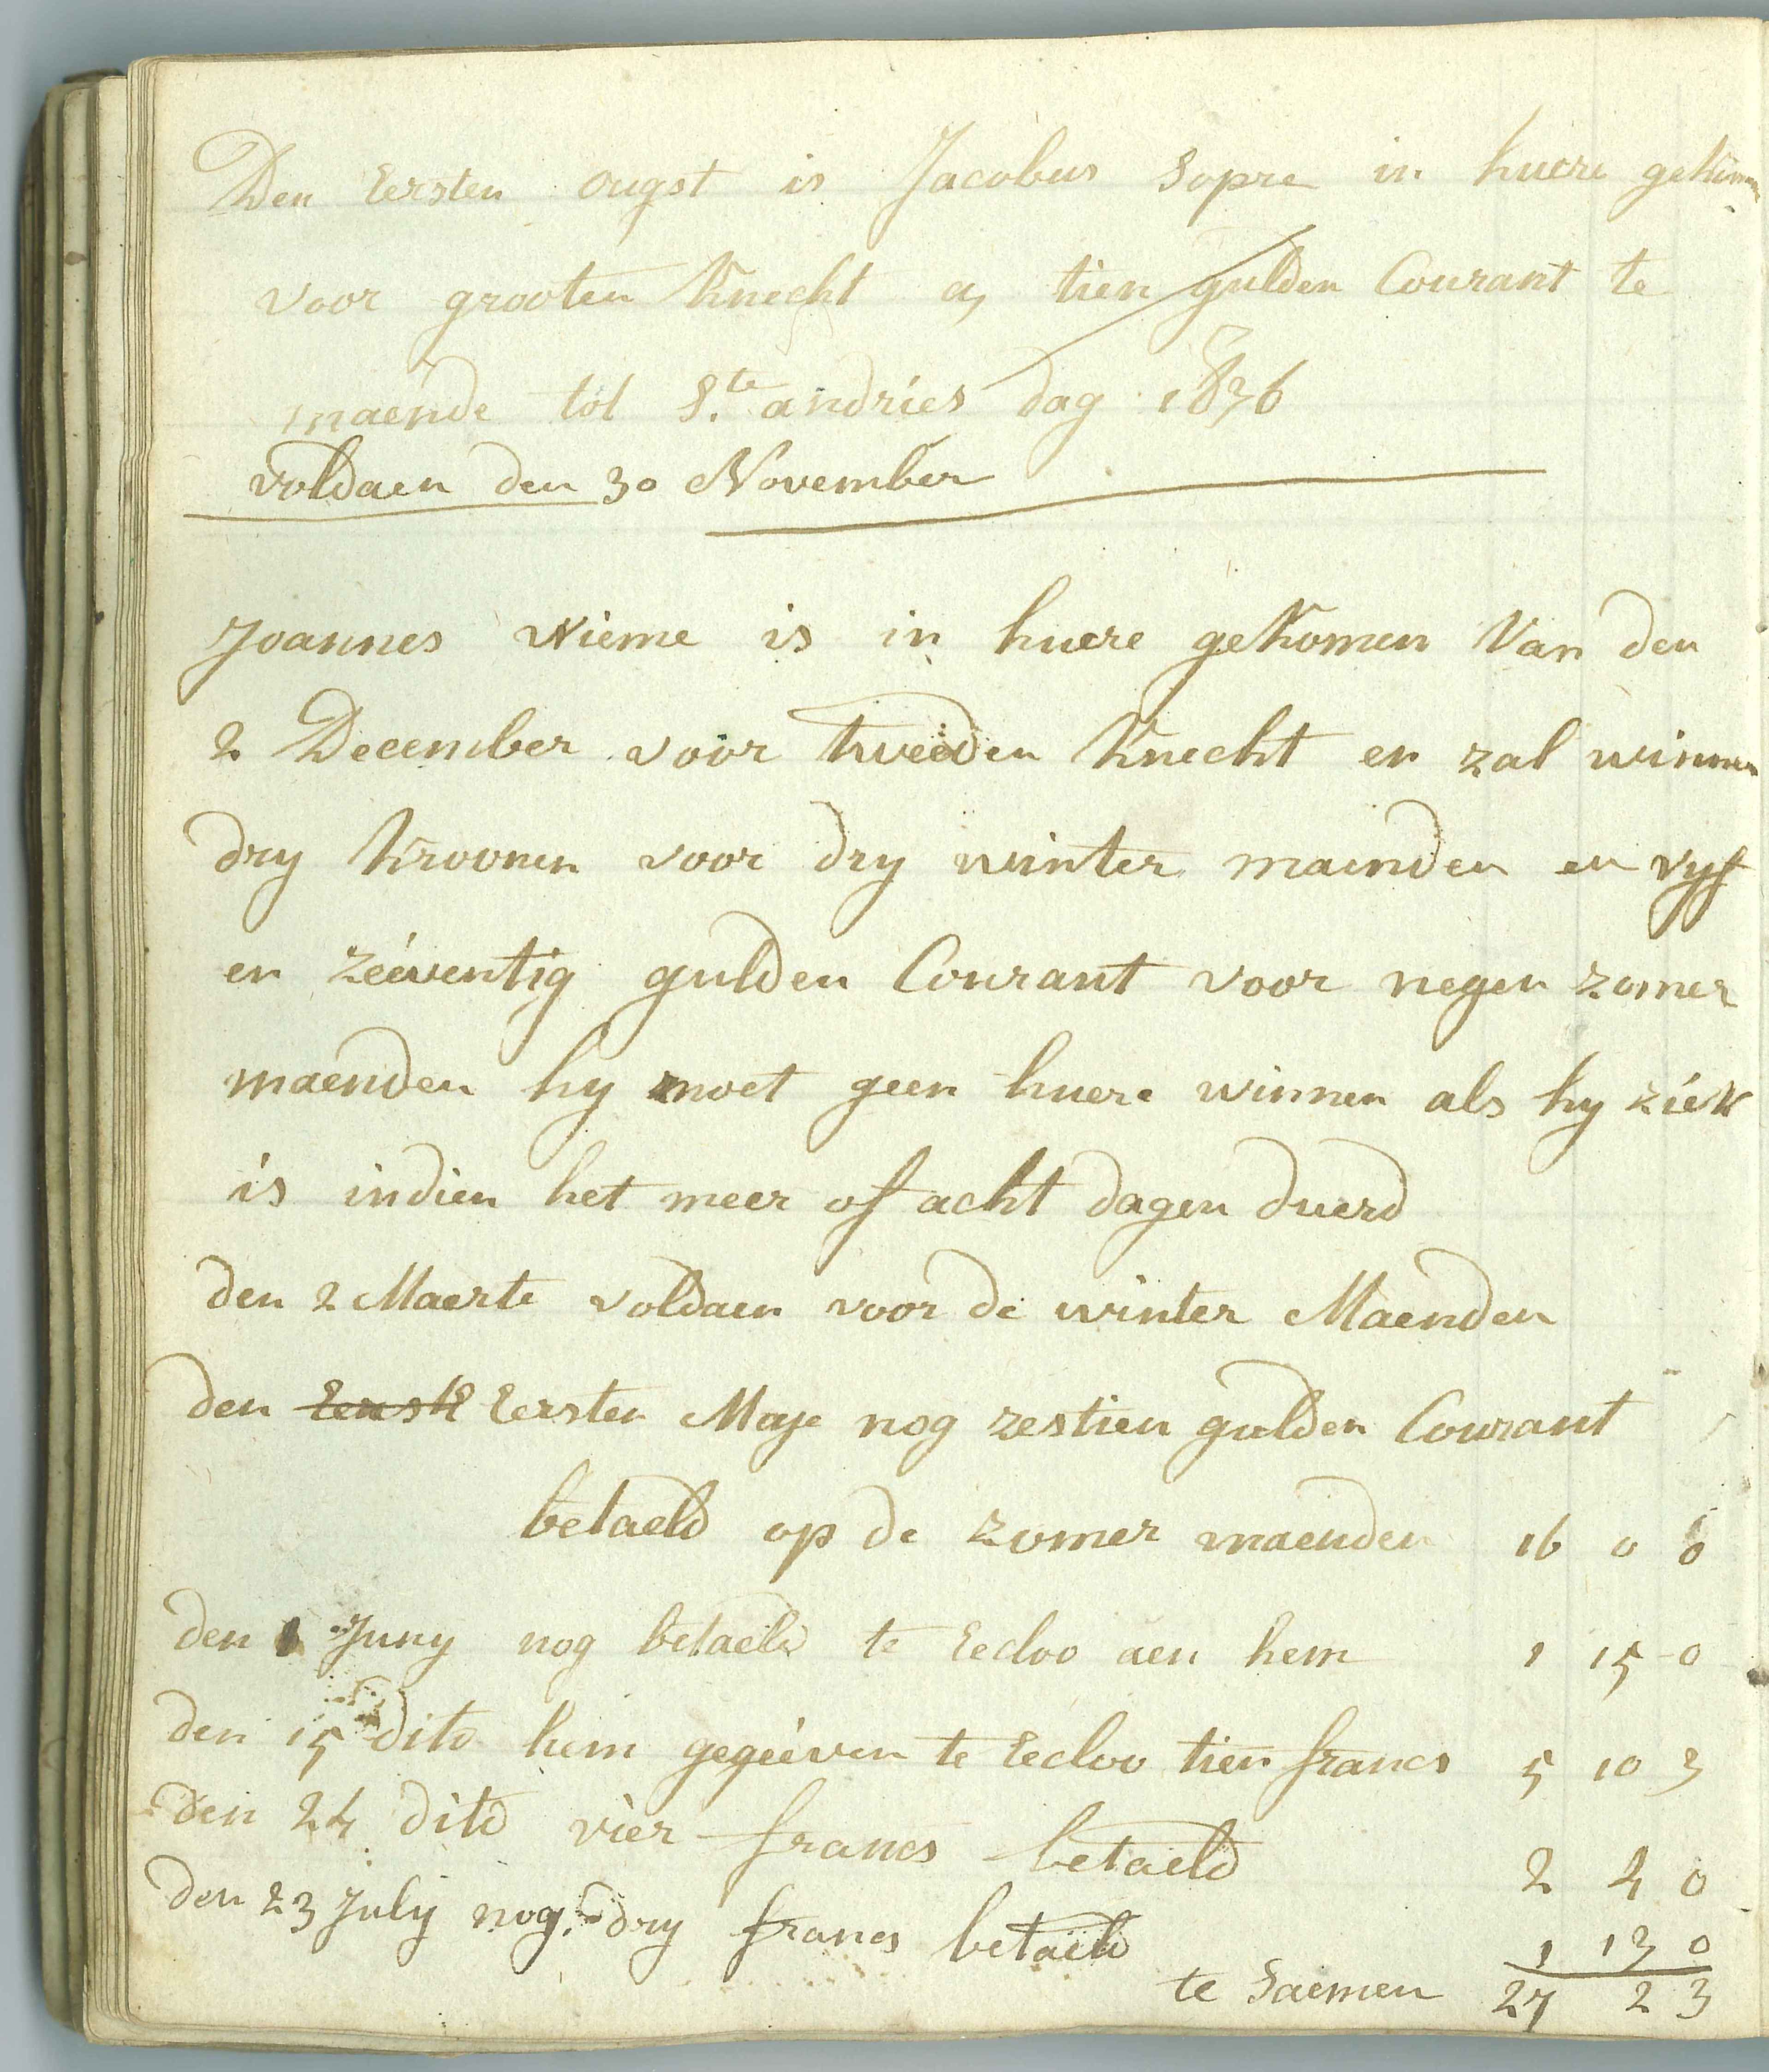 Den Eersten ougst is Jacobus Sopre in huere gekomen
voor grooten Knecht a, tien gulden Courant te
maende tot S.te andries dag 1836
voldaen den 30 November
Joannes Wieme is in huere gekomen Van den
2 December voor tweeden Knecht en zal winnen
dry Kroonen voor dry winter maenden en vyf
en zéeventig gulden Courant voor negen zomer
maenden hy moet geen huere winnen als hy ziek
is indien het meer of acht dagen duerd
den 2 Maerte voldaen voor de winter Maenden
den Eersten Maye nog zestien gulden Courant
betaeld op de zomer maenden 16 0 0
den 1 Juny nog betaeld te Eecloo aen hem 1 15 0
den 15 dito hem gegéeven te Eecloo tien francs 5 10 3
den 24 dito vier francs betaeld 2 4 0
den 23 July nog dry francs betaeld 1 13 0
te Saemen 27 2 3